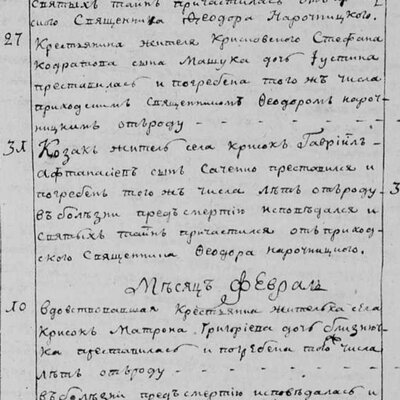 святыхъ таинъ причастилась отъ
ского Священника Ѳеодора Нарочницкого.
27 Крестьянина жителя Крисковского Стефана
Кодратова сына Машука дочь Іустина
преставилась и погребена того жъ числа
приходскимъ Священникомъ Ѳеодоромъ нароч-
ницкимъ отъроду
31 Козакъ житель села Крисокъ Гавріилъ
Афтанасіевъ сынъ Саченко преставился и
погребенъ того жъ числа лѣтъ отъроду
въ болѣзни предъ смертію исповѣдался и
святыхъ таинъ причастился отъ приход-
ского Священника Ѳеодора нарочницкого.
Мѣсяцъ Феврал
10 вдовствовавшая Крестьянка жителька села
Крисокъ Матрона Григоріева дочь близню-
ка преставилась и погребена того числа
лѣтъ отъроду
въ болѣзни предъ смертію исповѣдалась и